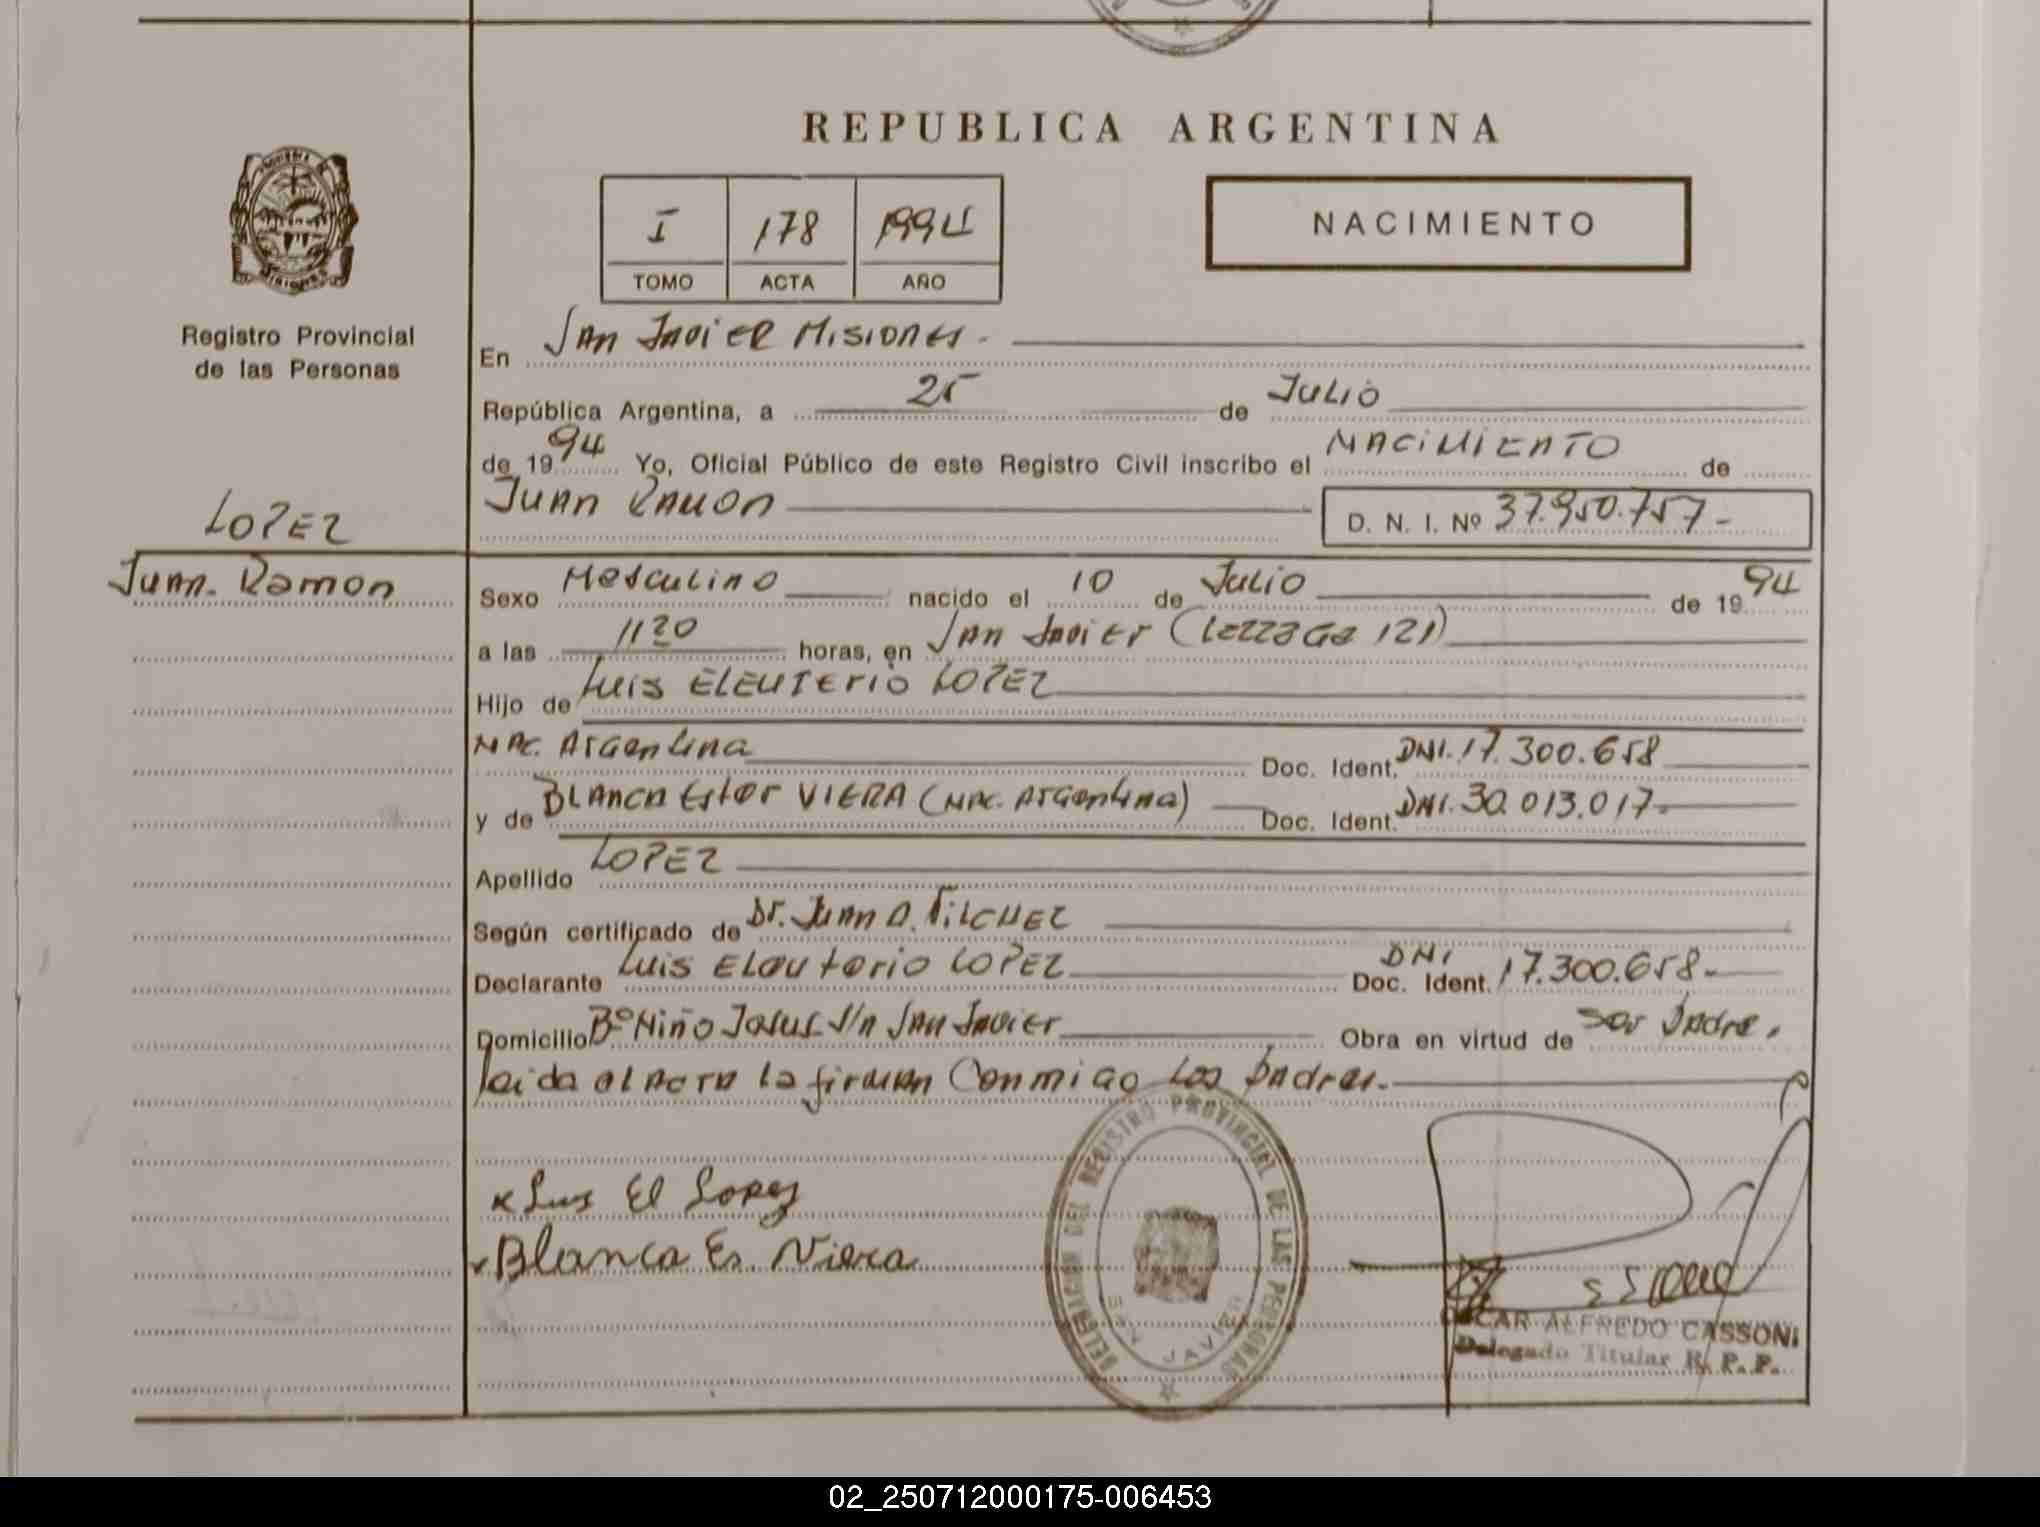 REPUBLICA ARGENTINA
I 178 1994
TOMO ACTA AÑO
NACIMIENTO
Registro Provincial
de las Personas
LOPEZ
Juan Ramon
En San Javier Misiones.
República Argentina, a 25 de Julio
de 1994 Yo, Oficial Público de este Registro Civil inscribo el NACIMIENTO de
Juan Ramon D. N. I. Nº 37.950.757-
Sexo Masculino nacido el 10 de Julio de 1994
a las 1120 horas, en San Javier (121)
Hijo de Luis ELEUTERIO LOPEZ
NAC. Argentina Doc. Ident. DNI. 17.300.658
y de BLANCA Ester VIERA (NAC. Argentina) Doc. Ident. DNI. 30.013.017-
Apellido LOPEZ
Según certificado de Dr. Juan A. VILCHEZ
Declarante Luis Eleuterio LOPEZ Doc. Ident. DNI 17.300.658-
Domicilio Bº Niño Jesus S/n San Javier Obra en virtud de ser Padre,
leida el acta la firman Conmigo los padres.
x Luis El Lopez
Blanca Es. Viera
DELEGACION DEL REGISTRO PROVINCIAL DE LAS PERSONAS
SAN JAVIER
OSCAR ALFREDO CASSONI
Delegado Titular R. P. P.
02_250712000175-006453